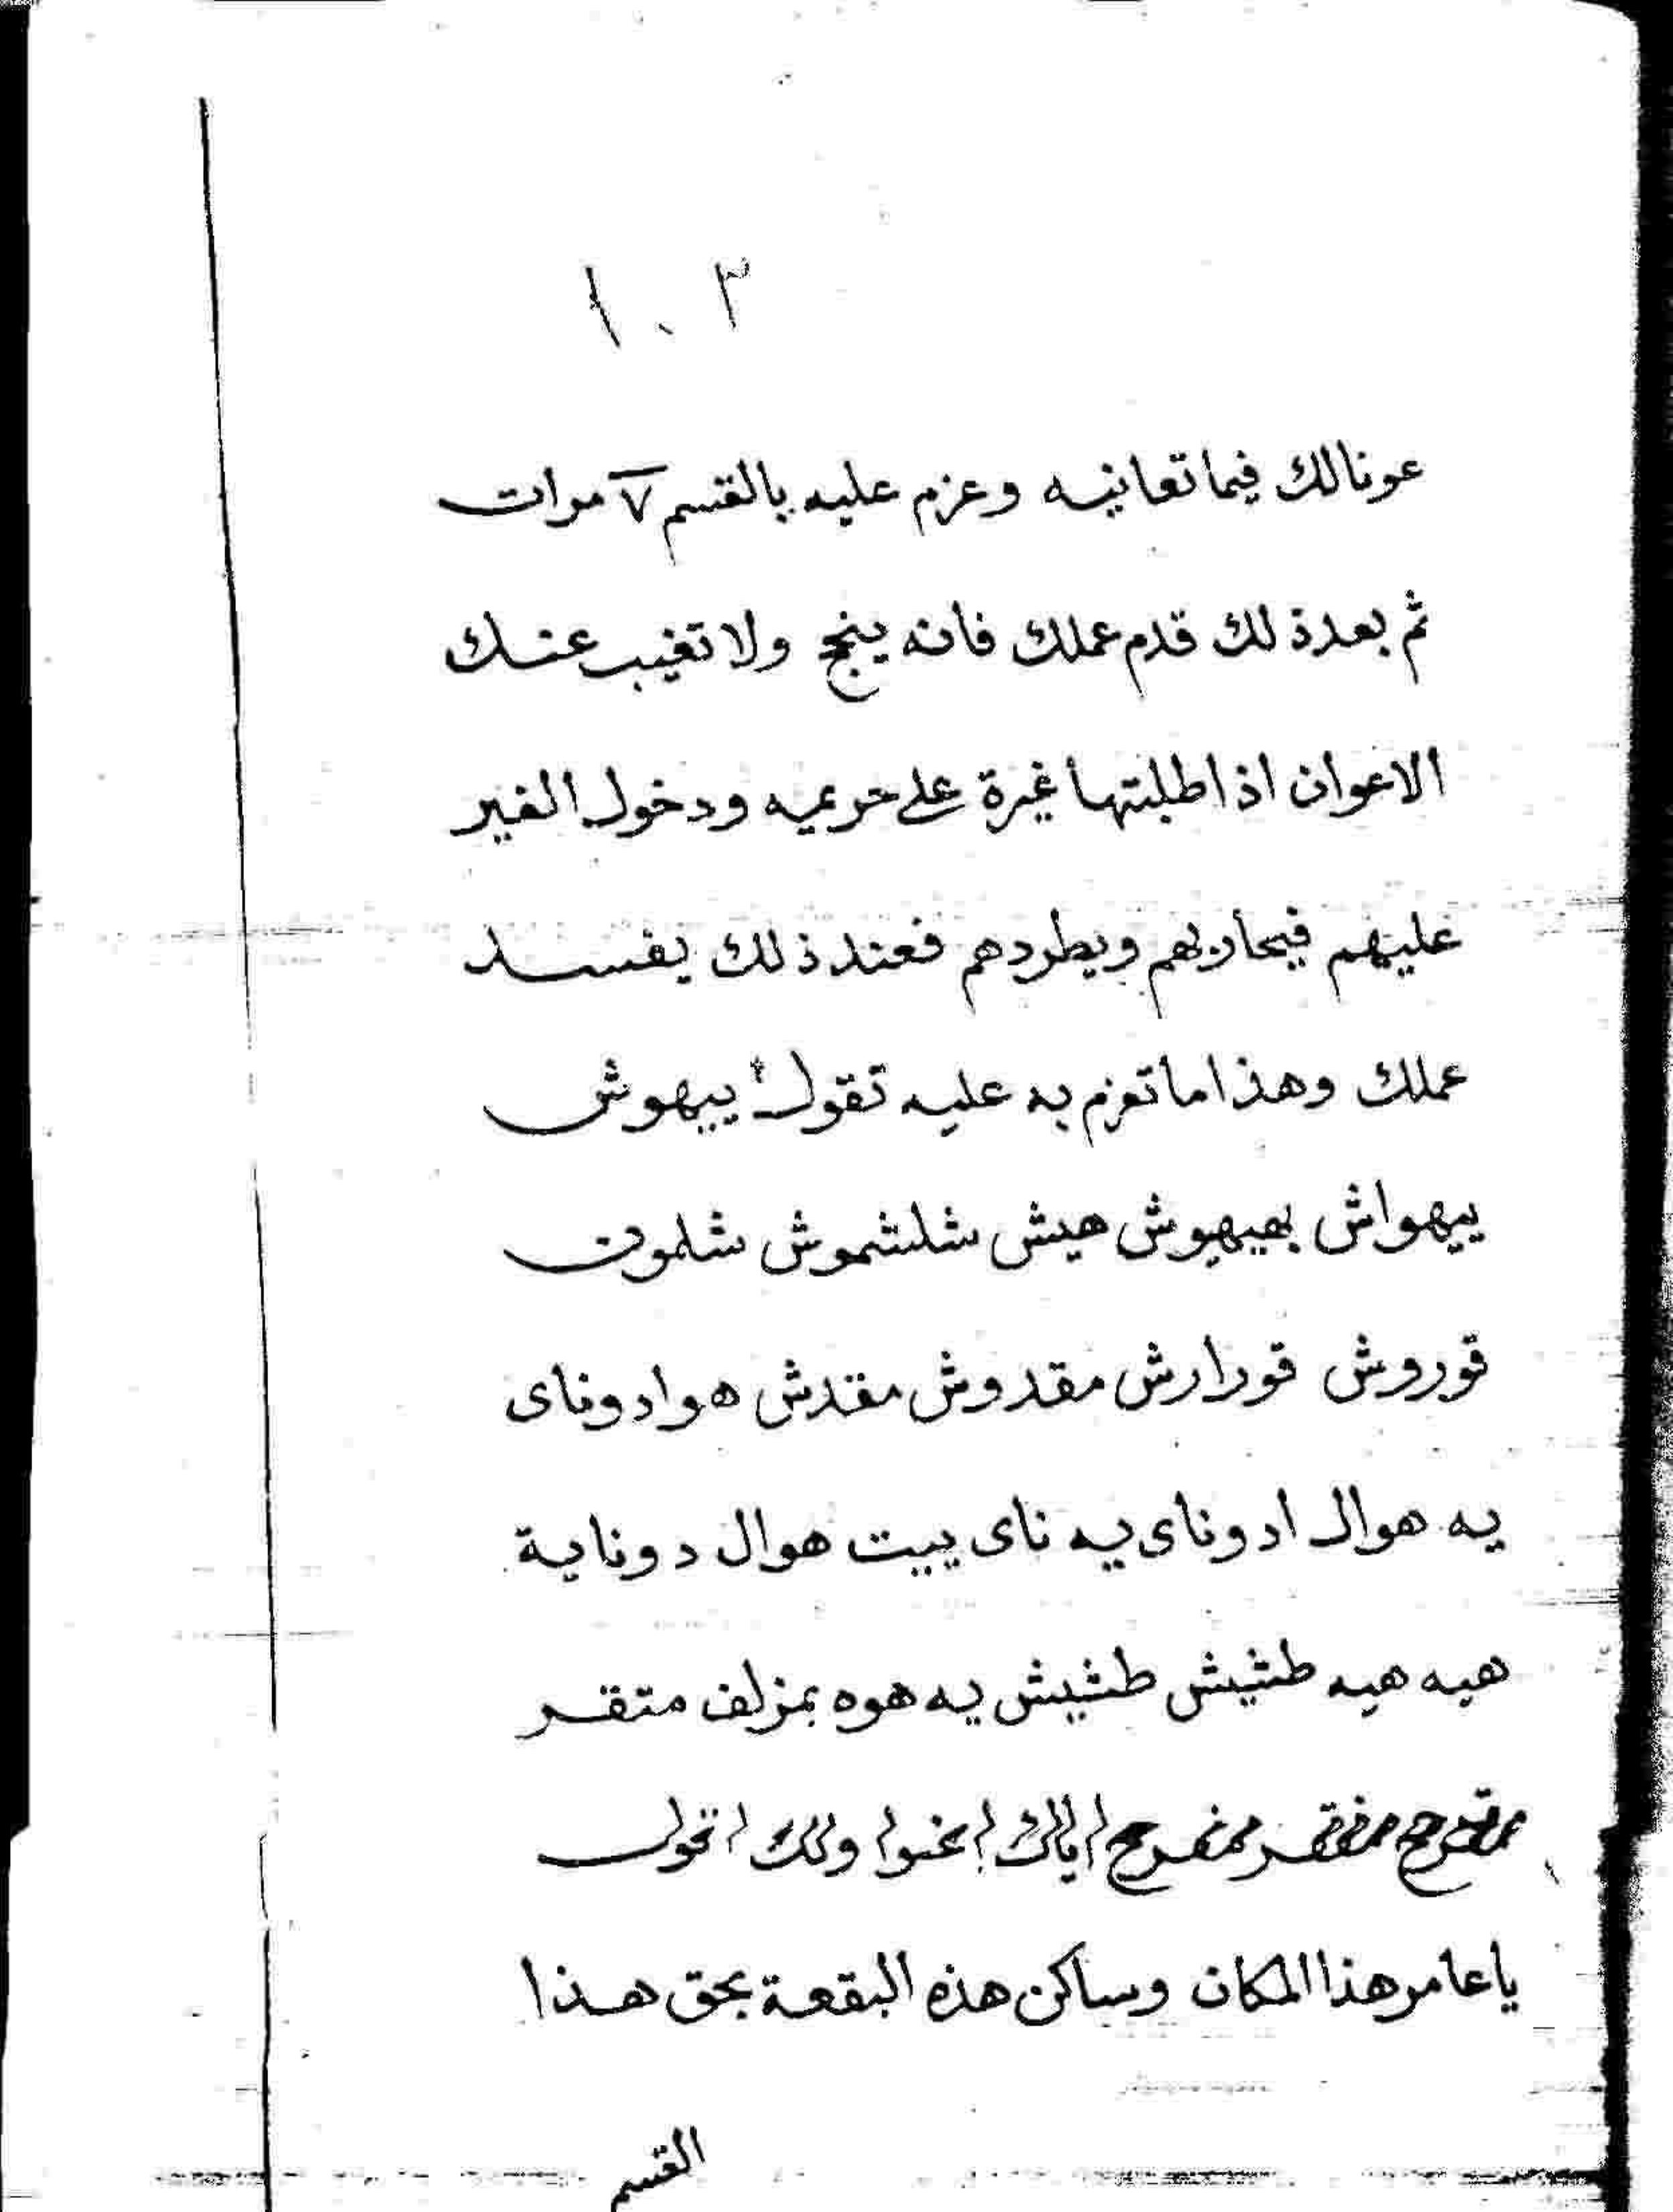 ١٠٢
عونا لك فيما تعانيه وعزم عليه بالقسم ٧ مرات
ثم بعد ذلك قدم عملك فانه ينجح ولا تغيب عنك
الاعوان اذا طلبتها غيرة على حريمه ودخول الغير
عليهم فيحاربهم ويطردهم فعند ذلك يفسد
عملك وهذا ما تعزم به عليه تقول ييهوش
ييهواش بهيهوش هيش شلشموش شلموت
قوروش قورارش مقدوش مقدش هو ادوناى
يه هوال ادوناى يه ناى ييت هوال دوناية
هيه هيه طشيش طشيش يه هوه بمزلف متقر
اياك ولك اقول
يا عامر هذا المكان وساكن هذه البقعة بحق هذا
القسم